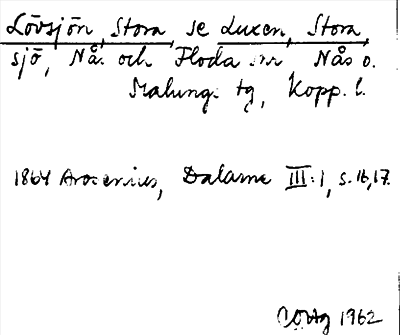 Lövsjön, Stora, se Luxen, Stora,
sjö, Nå. och Floda snr Nås o.
Malung. tg, Kopp. l.
1864 Arosenius, Dalarne III:1, s. 16, 17.
1962